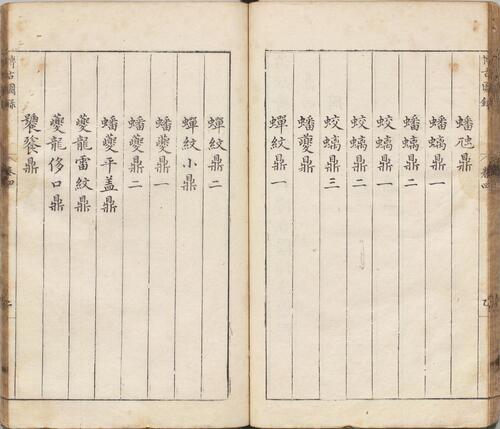 博古圖錄
卷四
蟠虺鼎
蟠螭鼎一
蟠螭鼎二
蛟螭鼎一
蛟螭鼎二
蛟螭鼎三
蟠夔鼎
蟬紋鼎一
蟬紋鼎二
蟬紋小鼎
蟠夔鼎一
蟠夔鼎二
蟠夔平蓋鼎
夔龍雷紋鼎
夔龍侈口鼎
饕餮鼎
博古圖錄
卷四
二